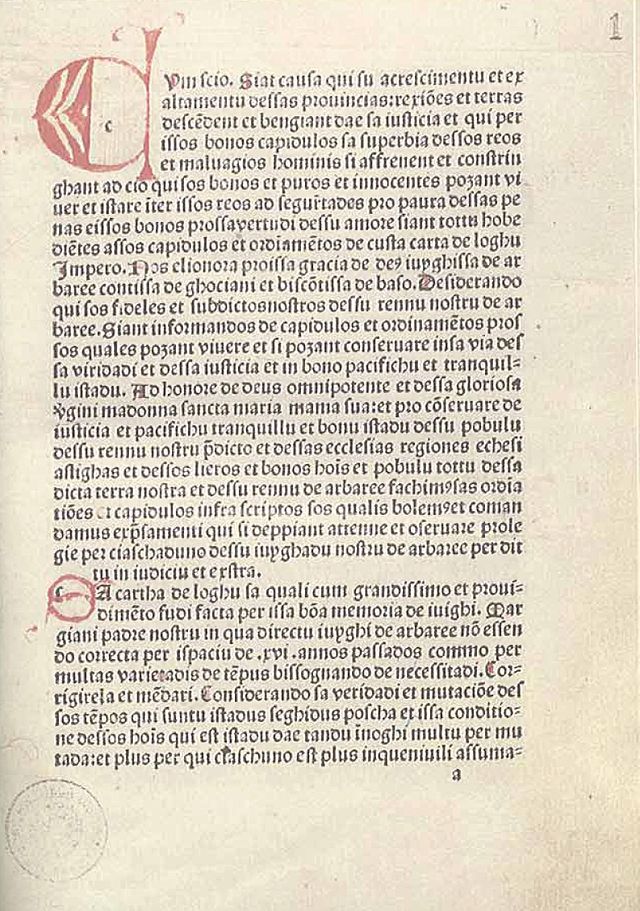 1
CVm scio. Siat causa qui su acrescimentu et ex
altamentu dessas prouincias: rexiões et terras
descēdent et bengiant dae sa iusticia et qui per
issos bonos capidulos sa superbia dessos reos
et maluagios hominis si affrenent et constrin
ghant ad cio qui sos bonos et puros et innocentes pozant vi
uer et istare īter issos reos ad segurtades pro paura dessas pe
nas eissos bonos prossa vertudi dessu amore siant tottu hobe
diētes assos capidulos et ordiamētos de custa carta de loghu
Impero. Nos elionora proissa gracia de deꝰ iuyghissa de ar
baree contissa de ghociani et biscōtissa de baso. Desiderando
qui sos fideles et subdictos nostros dessu rennu nostru de ar
baree. Siant informandos de capidulos et ordinamētos pros
sos quales pozant viuere et si pozant conseruare in sa via des
sa viridadi et dessa iusticia et in bono pacifichu et tranquil⸗
lu istadu. Ad honore de deus omnipotente et dessa gloriosa
v̄gini madonna sancta maria mama sua: et pro cōseruare de
iusticia et pacifichu tranquillu et bonu istadu dessu pobulu
dessu rennu nostru p̄dicto et dessas ecclesias regiones echesi
astighas et dessos lieros et bonos hoīs et pobulu tottu dessa
dicta terra nostra et dessu rennu de arbaree fachimꝰ sas ordīa
tiōes et capidulos infra scriptos sos qualis bolemꝰ et coman
damus exp̄samenti qui si deppiant attenne et oseruare pro le
gie per ciaschaduno dessu iuyghadu nostru de arbaree per dit
tu in iudiciu et extra.
SA cartha de loghu sa quali cum grandissimo et proui⸗
dimēto fudi facta per issa bōa memoria de iuighi. Mar
giani padre nostru in qua directu iuyghi de arbaree nō essen
do correcta per ispaciu de .xvi. annos passados commo per
multas varietadis de tēpus bissognando de necessitadi. Cor⸗
rigirela et mēdari. Considerando sa veridadi et mutaciōe des
sos tēpos qui suntu istadus seghidus poscha et issa conditio⸗
ne dessos hoīs qui est istadu dae tandu īnoghi multu per mu
tada: et plus per qui ciaschuno est plus inqueniuili assuma⸗
a